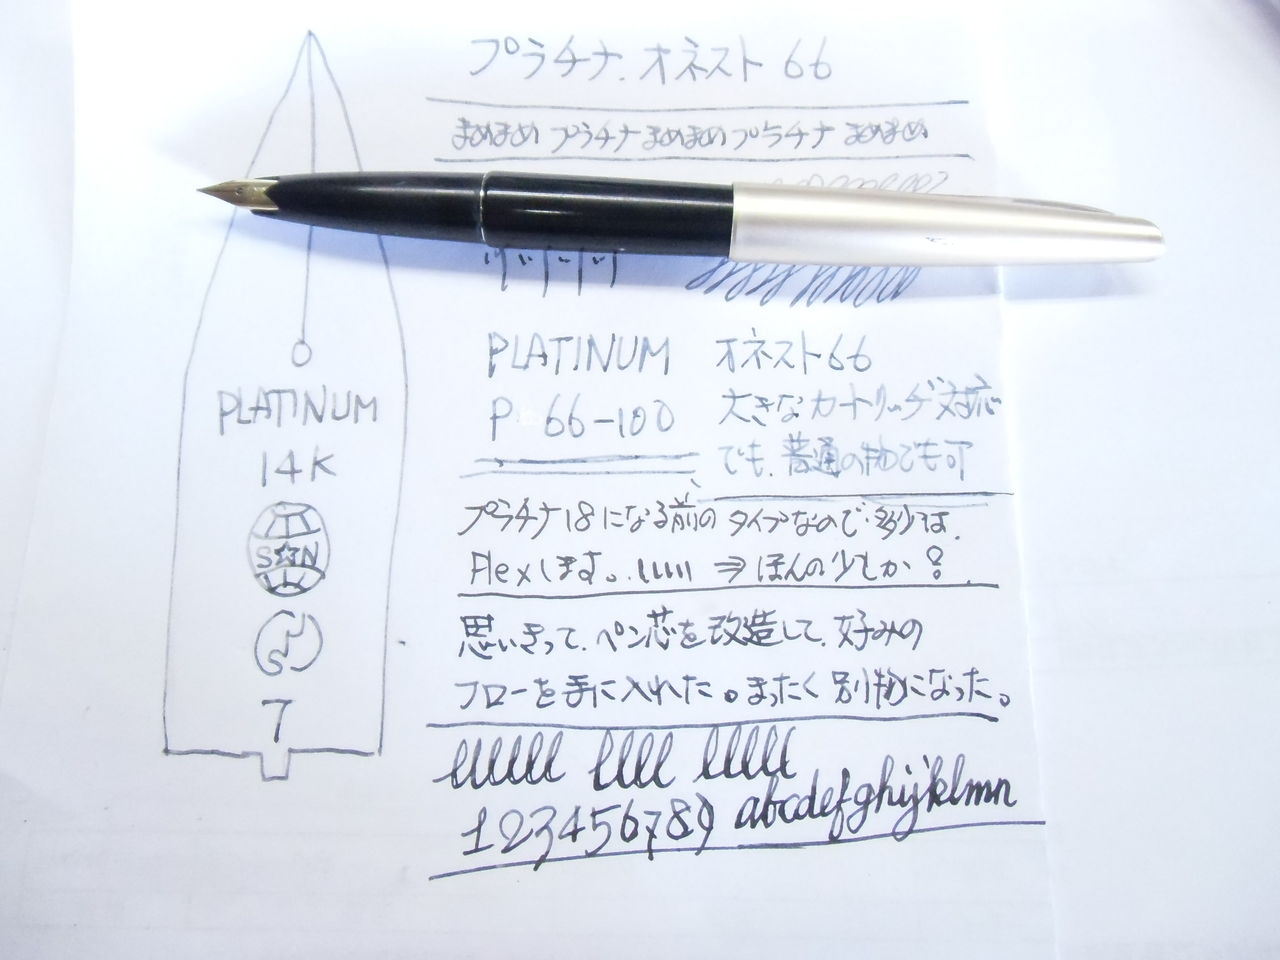 プラチナ.オネスト66
まめまめ プラチナ まめまめ プラチナ まめまめ
PLATINUM
P 66-100
オネスト66
大きなカートリッヂ対応
でも.普通の物でも可
プラチナ18になる前のタイプなので.多少は.
Flexします。⇒ほんの少しか
思いきって.ペン芯を改造して.好みの
フローを手に入れた。まったく別物になった。
llllll llll lllll
123456789 abcdefghijklmn
PLATINUM
14K
S☆N
7